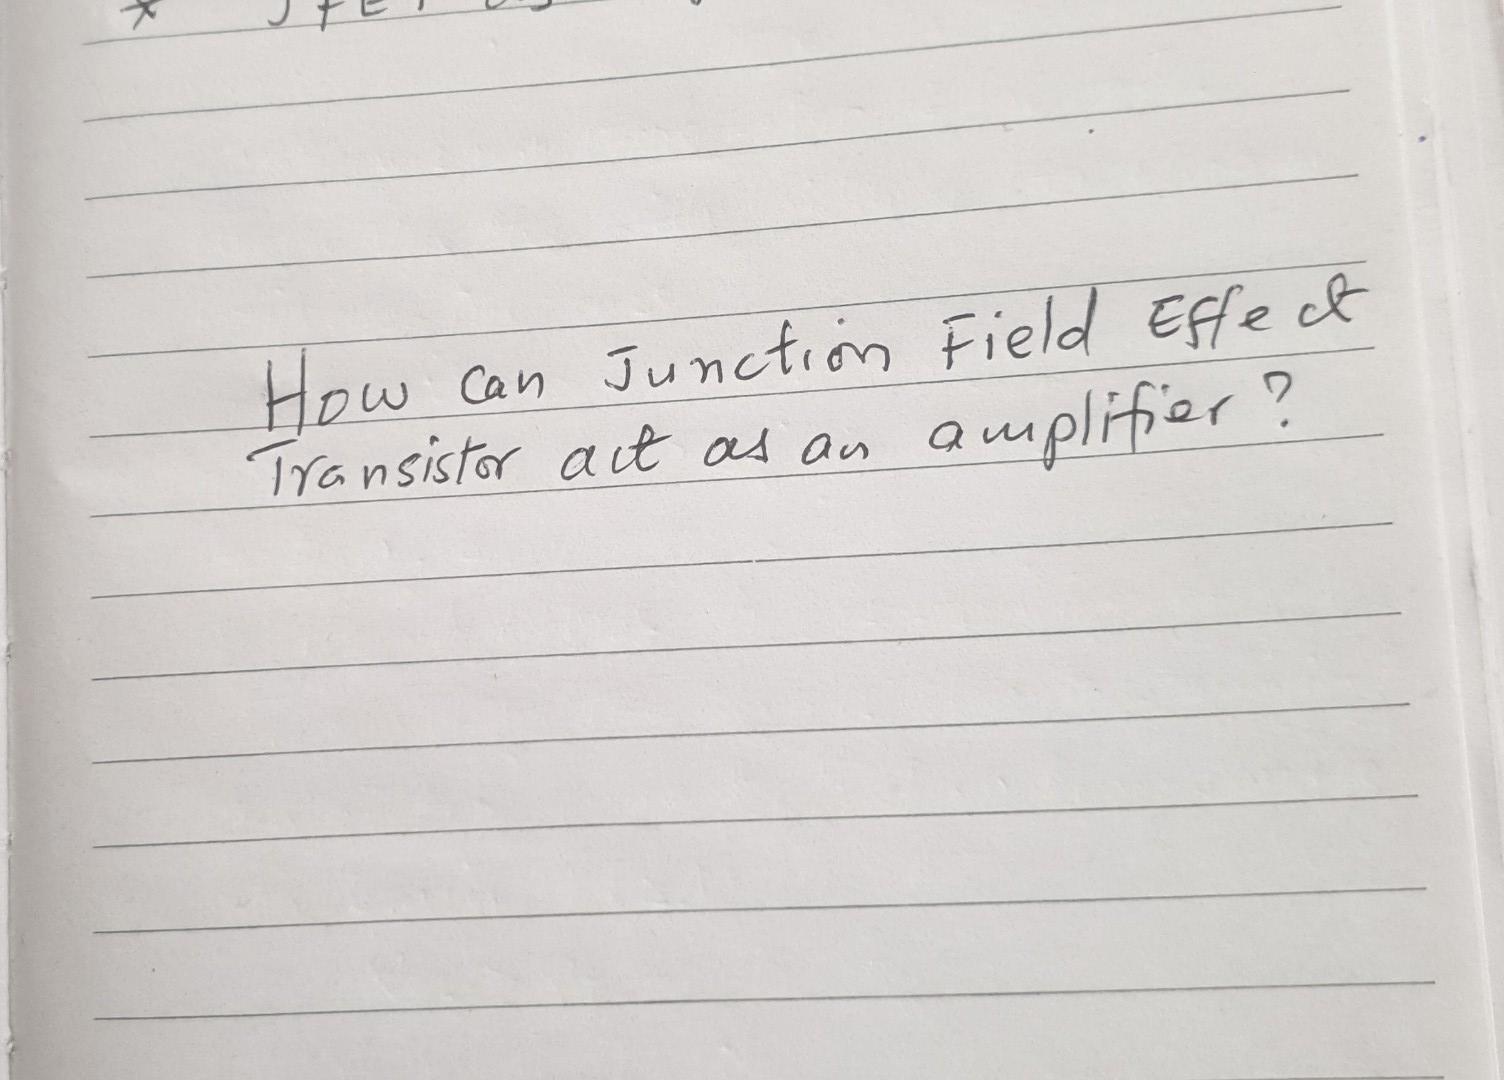 * JFET as
How can Junction Field Effect
Transistor act as an amplifier?